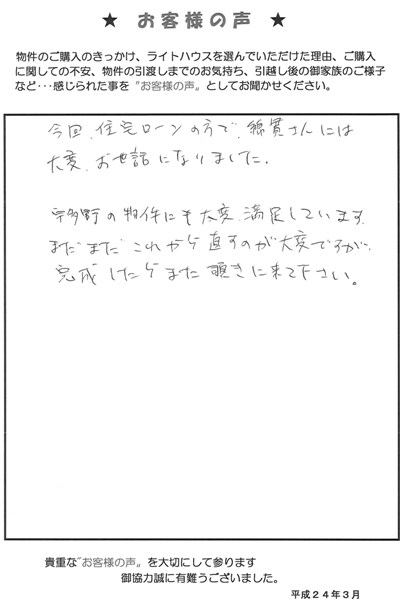 ★ お客様の声 ★
物件のご購入のきっかけ、ライトハウスを選んでいただけた理由、ご購入
に関しての不安、物件の引渡しまでのお気持ち、引越し後の御家族のご様子
など･･･感じられた事を〝お客様の声〟としてお聞かせください。
今回、住宅ローンの方で、綿貫さんには
大変、お世話になりました。
宇多野の物件にも大変、満足しています。
まだまだこれから直すのが大変ですが、
完成したらまた覗きに来て下さい。
貴重な〝お客様の声〟を大切にして参ります
御協力誠に有難うございました。
平成２４年３月